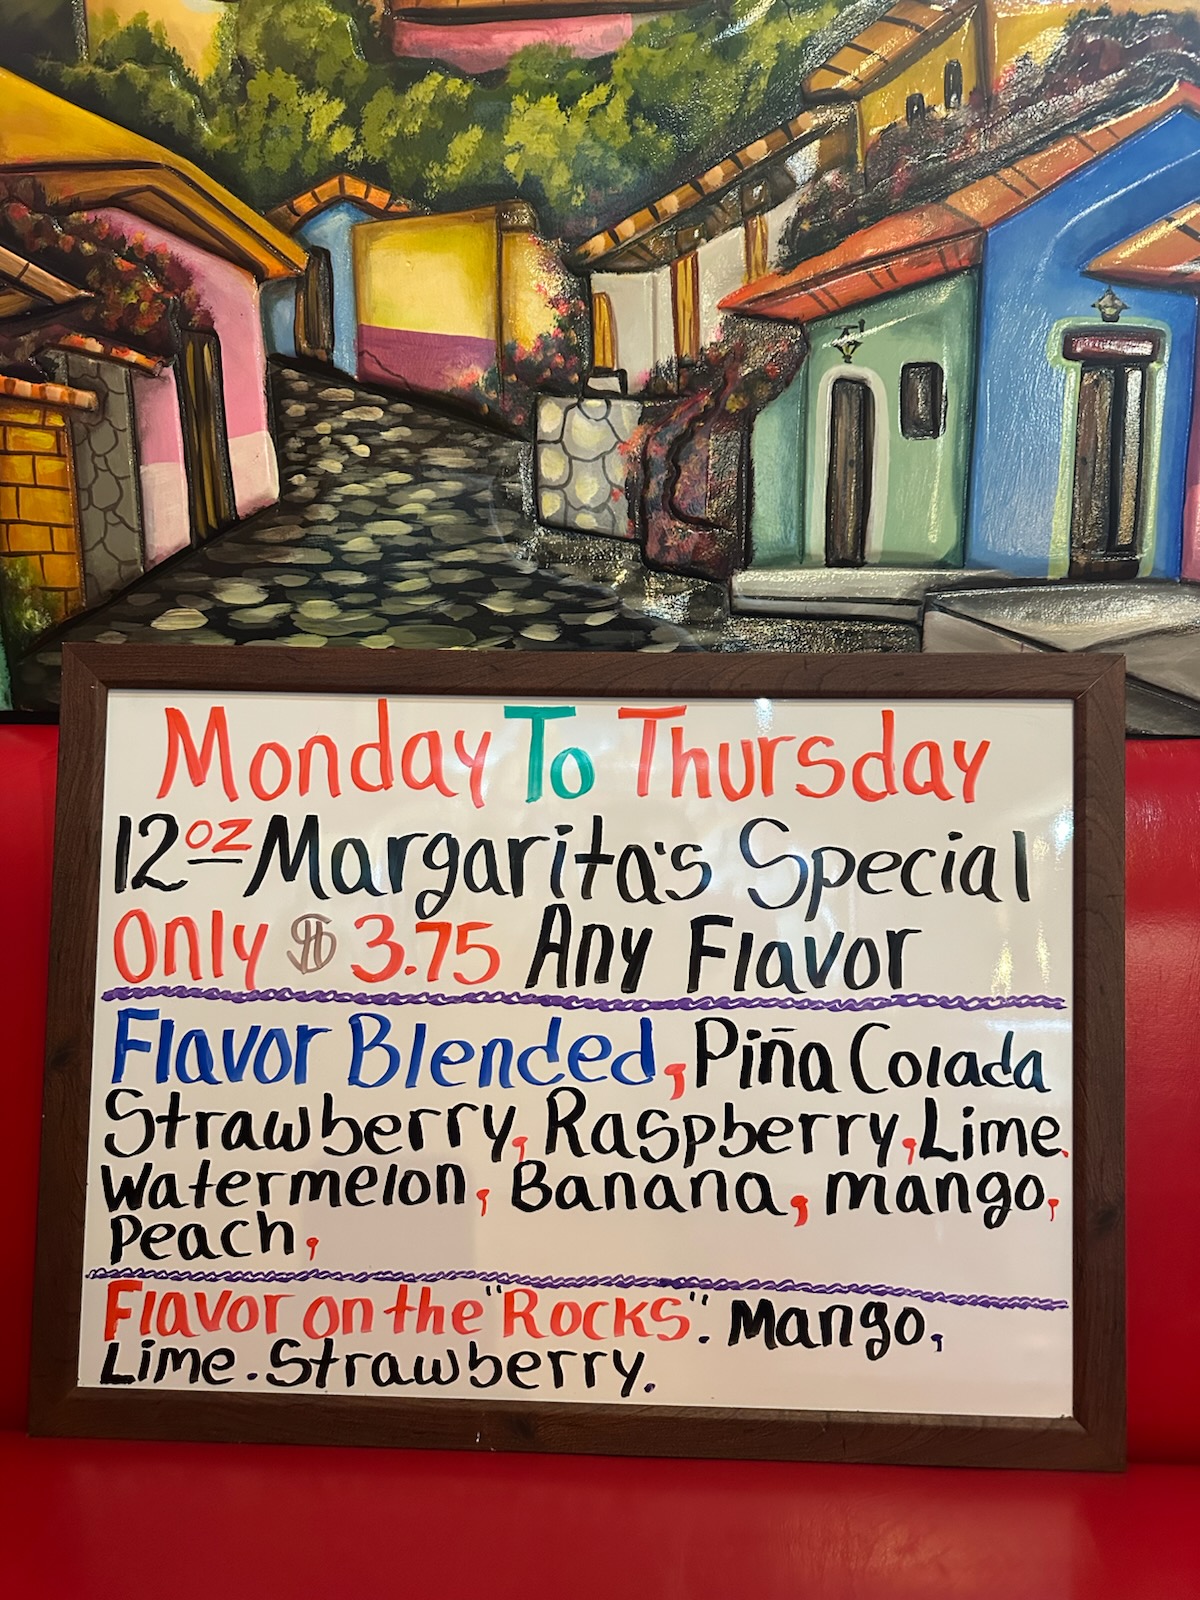 Monday To Thursday
12oz Margarita's Special
Only $ 3.75 Any Flavor
Flavor Blended, Piña Colada
Strawberry, Raspberry, Lime.
Watermelon, Banana, mango,
Peach,
Flavor on the "Rocks". Mango,
Lime. Strawberry.